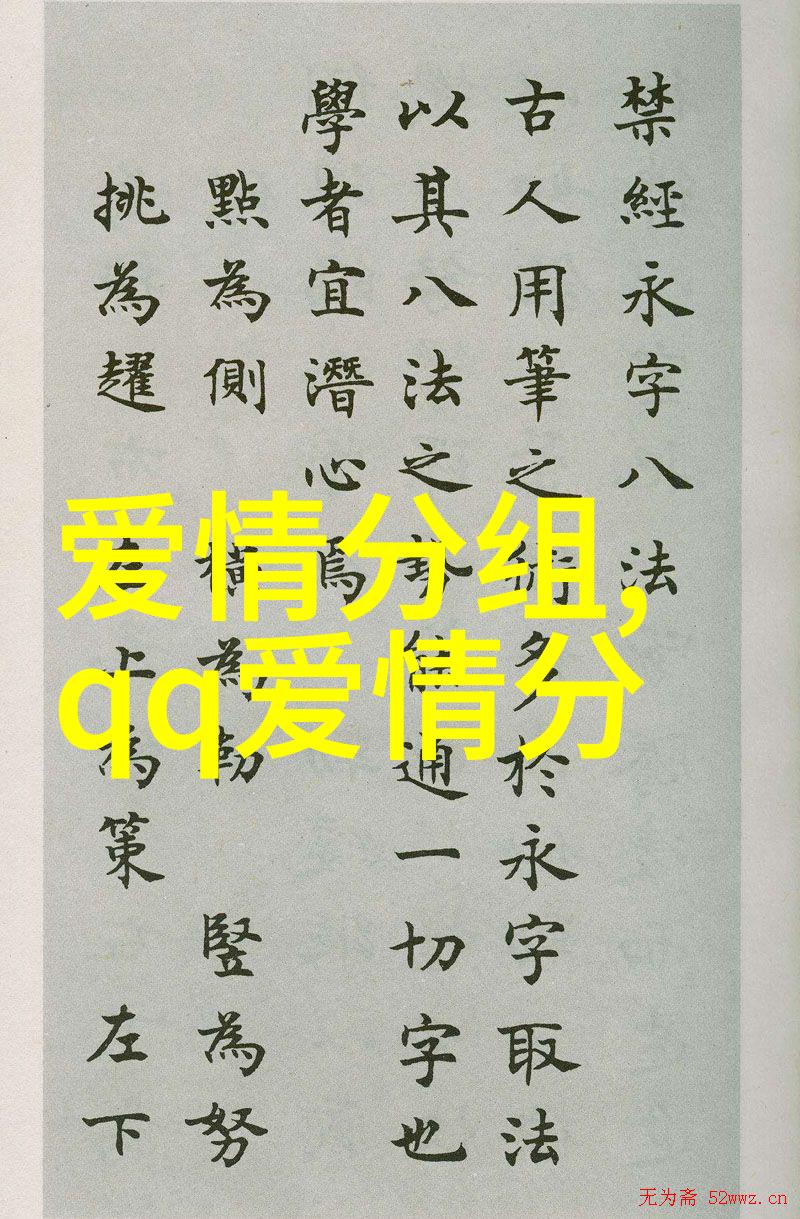 禁經永字八法
古人用筆之術多於永字取法
以其八法之勢能通一切字也
學者宜潛心焉
點為側 橫為勒 竪為努
挑為趯 左上為策 左下
爱情分组,
qq爱情分
无为斋 52wwz.cn